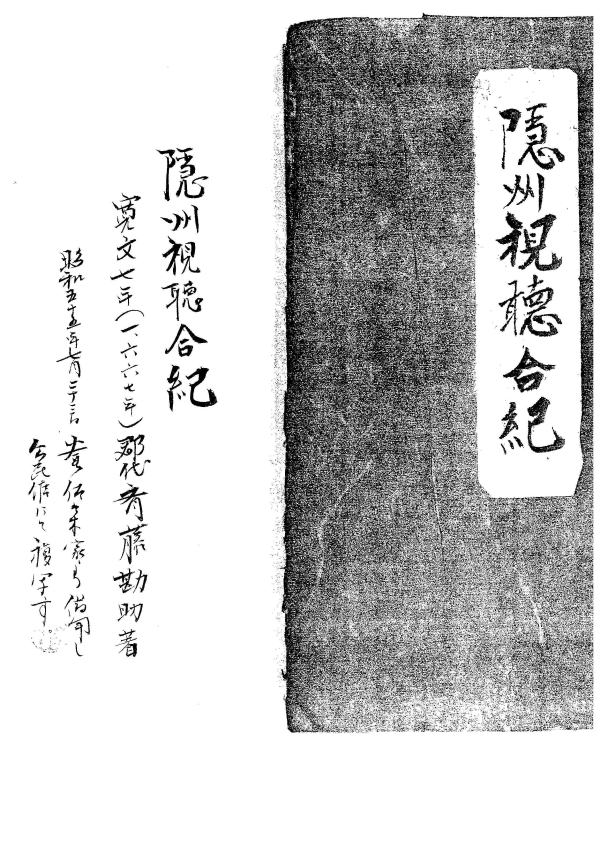 隠州視聴合紀
隠州視聴合紀
寛文七年(一六六七年)郡代斉藤勘助著
昭和五十五年七月三十一日 佐々木家より借用し
公民館にて複写す